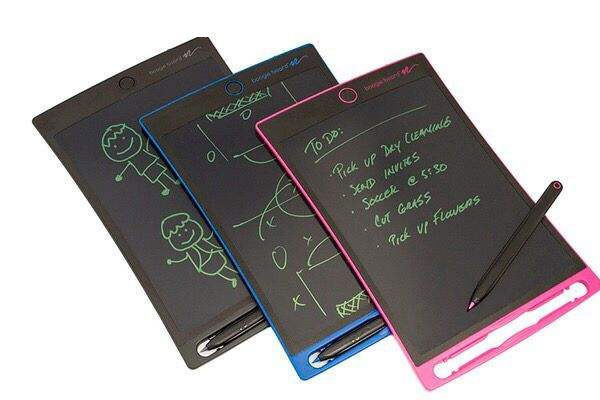 boogie board
boogie board
boogie board
0
0
x
0
Y
x
TO DO:
• PICK UP DRY CLEANING
• SEND INVITES
• SOCCER @ 5:30
• CUT GRASS
• PICK UP FLOWERS